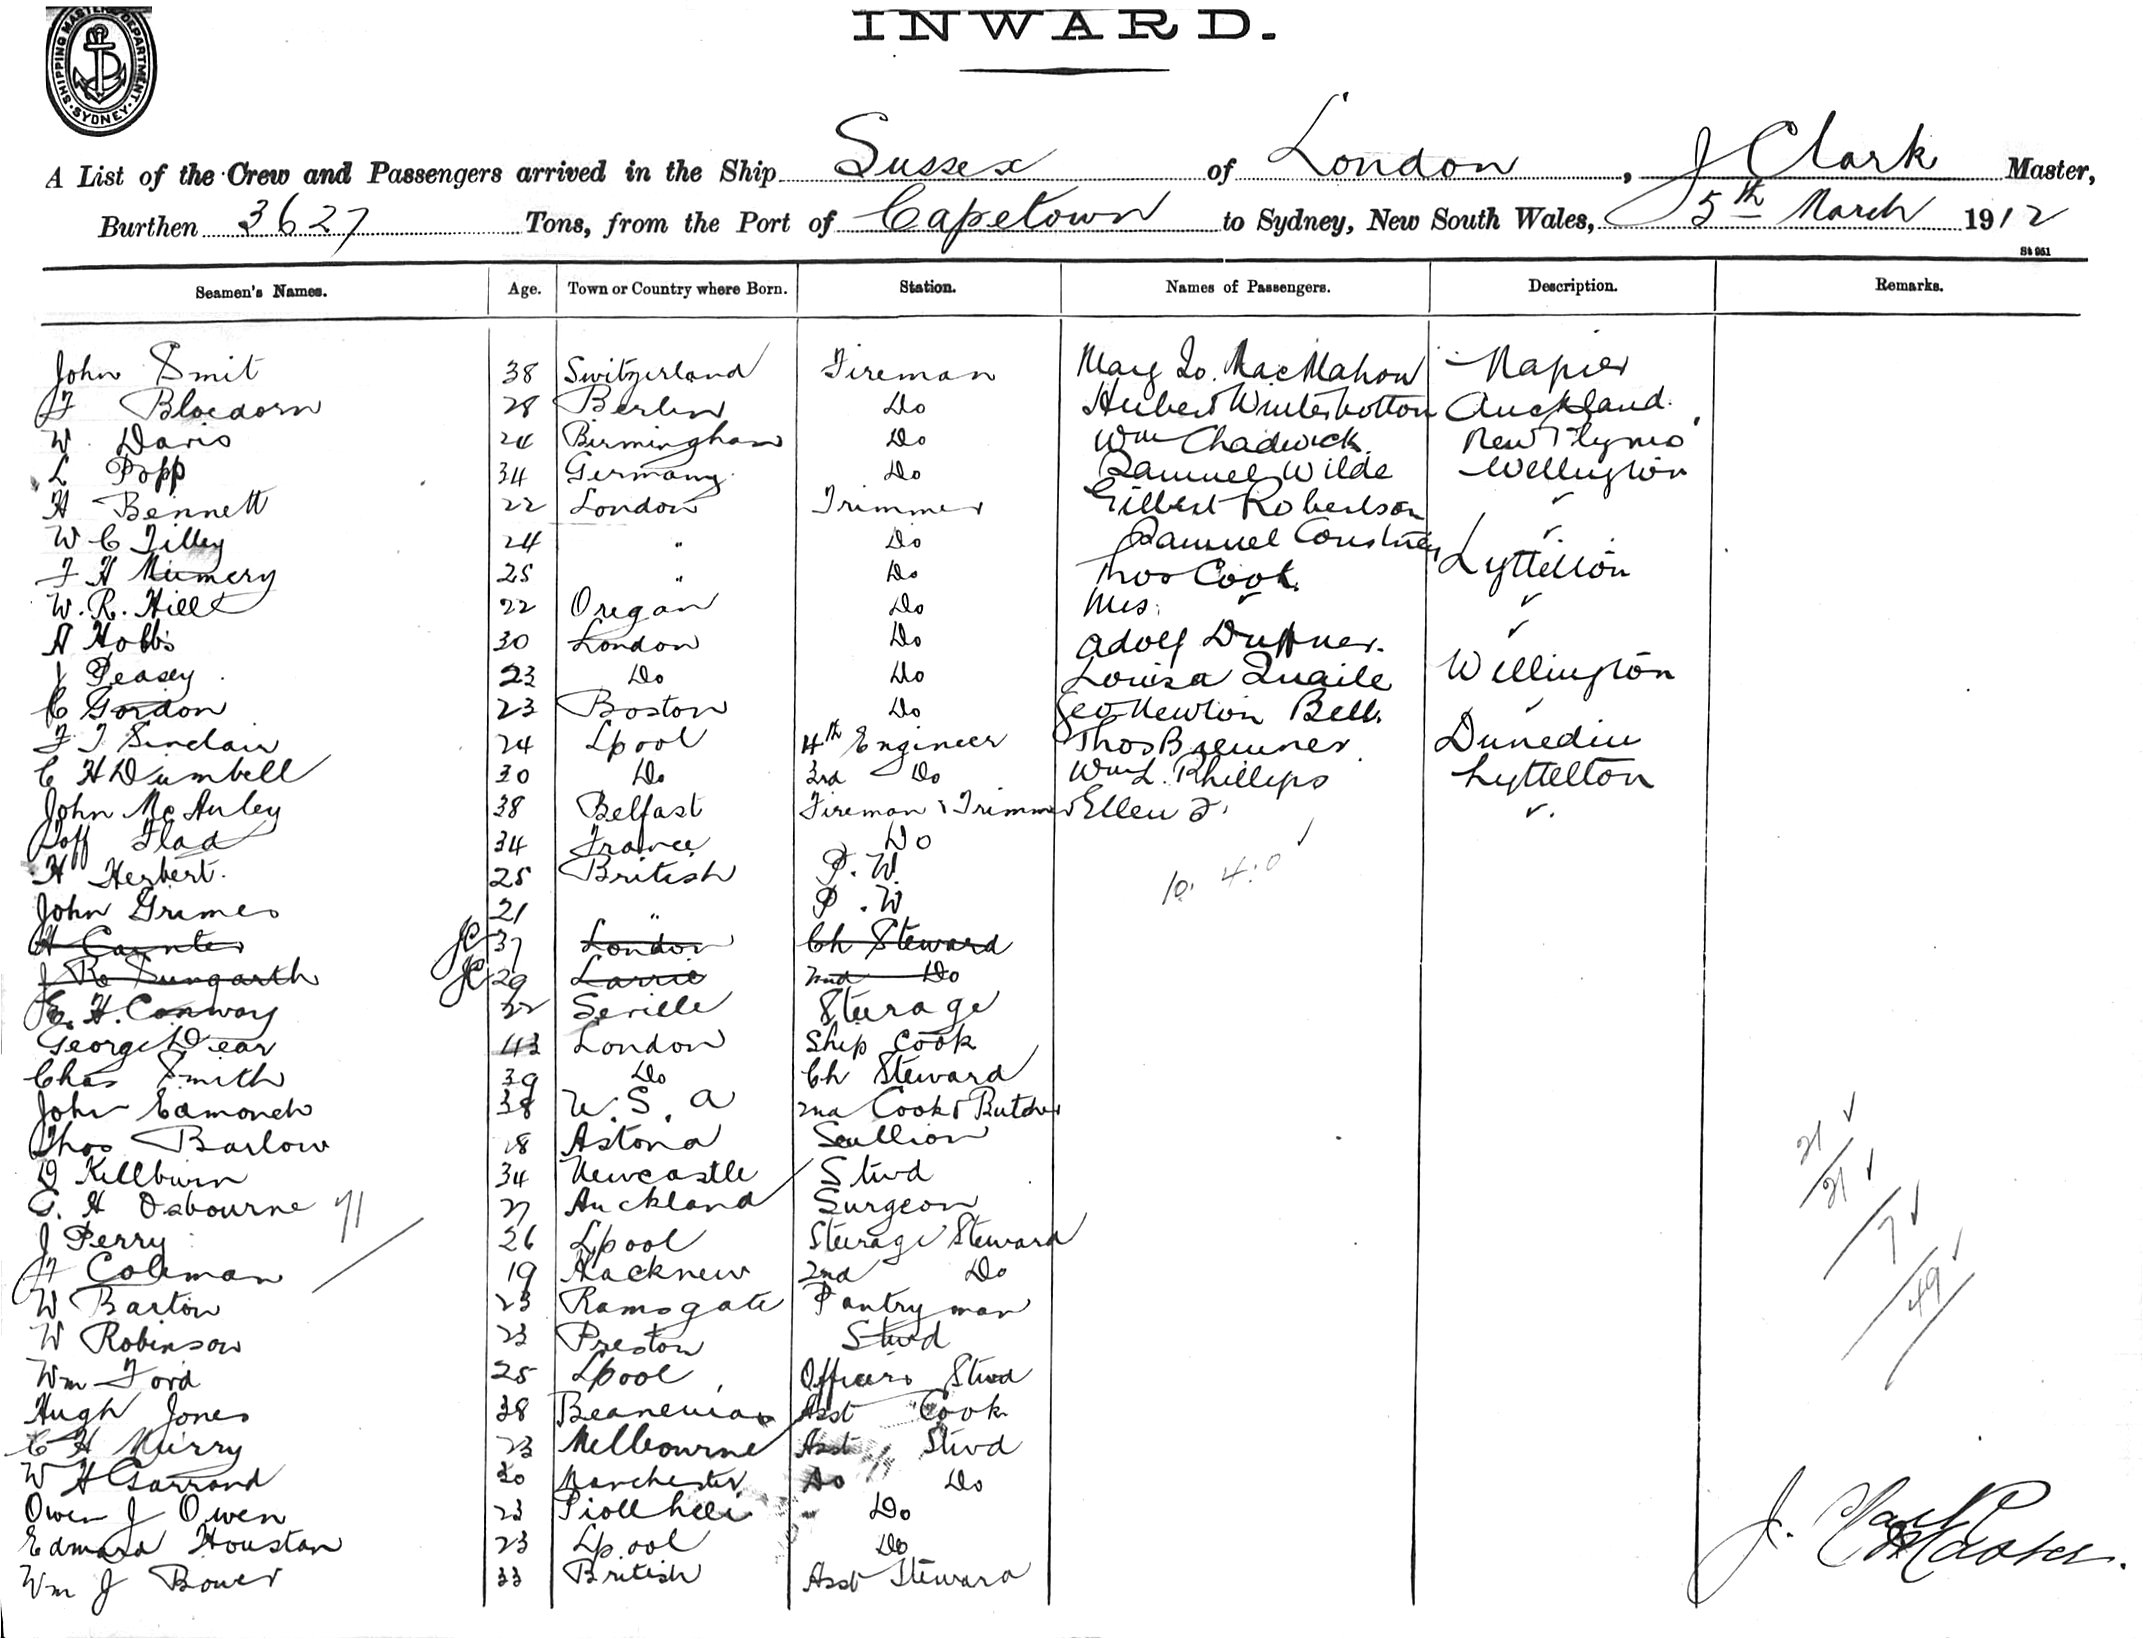 SHIPPING MASTER'S DEPARTMENT SYDNEY
INWARD.
A List of the Crew and Passengers arrived in the Ship Sussex of London, J Clark Master,
Burthen 3627 Tons, from the Port of Capetown to Sydney, New South Wales, 5th March 1912
St 961
Seamen's Names. Age. Town or Country where Born. Station. Names of Passengers. Description. Remarks.
John Smit 38 Switzerland Fireman Mary Jo. MacMahon Napier
F Bloedorn 28 Berlin Do Hubert Winterbottom Auckland
W. Davis 24 Birmingham Do Wm Chadwick New Plymo'
L Popp 34 Germany Do Samuel Wilde Wellington
H Bennett 22 London Trimmer Gilbert Robertson
W C Tilley 24 " Do Samuel
F H Mumery 25 " Do Thos Cook. Lyttelton
W. R. Hill 22 Oregan Do Mrs.
A Hobbs 30 London Do Adolf
J Peasey 23 Do Do Louisa Quaile Wellington
C Gordon 23 Boston Do Geo Newton Bell.
F J Sinclair 24 Lpool 4th Engineer Thos Bremner Dunedin
C H Dumbell 30 Do 3rd Do Wm L. Phillips Lyttelton
John McAuley 38 Belfast Fireman & Trimmer Ellen F.
Flad 34 France Do
H Herbert. 25 British P. W.
John Grimes 21 " P. W
10. 4:0
H London Ch Steward JC 37
J JC 29 2nd Do
E. H. Conway 32 Seville Steerage
George Dear 43 London Ship Cook
Chas Smith 39 Do Ch Steward
John Edmonds 38 U. S. A 2nd Cook & Butcher
Thos Barlow 18 Astoria Scullion
D Killburn 34 Newcastle Stwd
G. H Osbourne 27 Auckland Surgeon
J Perry 26 Lpool Steerage Steward
H Coleman 19 Hacknew 2nd Do
W Barton 23 Ramsgate Pantryman
W Robinson 23 Preston Stwd
Wm Ford 25 Lpool Officers Stwd
Hugh Jones 38 Asst Cook
C H Murry 23 Melbourne Asst Stwd
W H Garrand 30 Manchester Do Do
Owen J Owen 23 Do
Edward Houston 23 Lpool Do
Wm J Bower 33 British Asst Steward
21
21
7
49
J. Clark
Master.